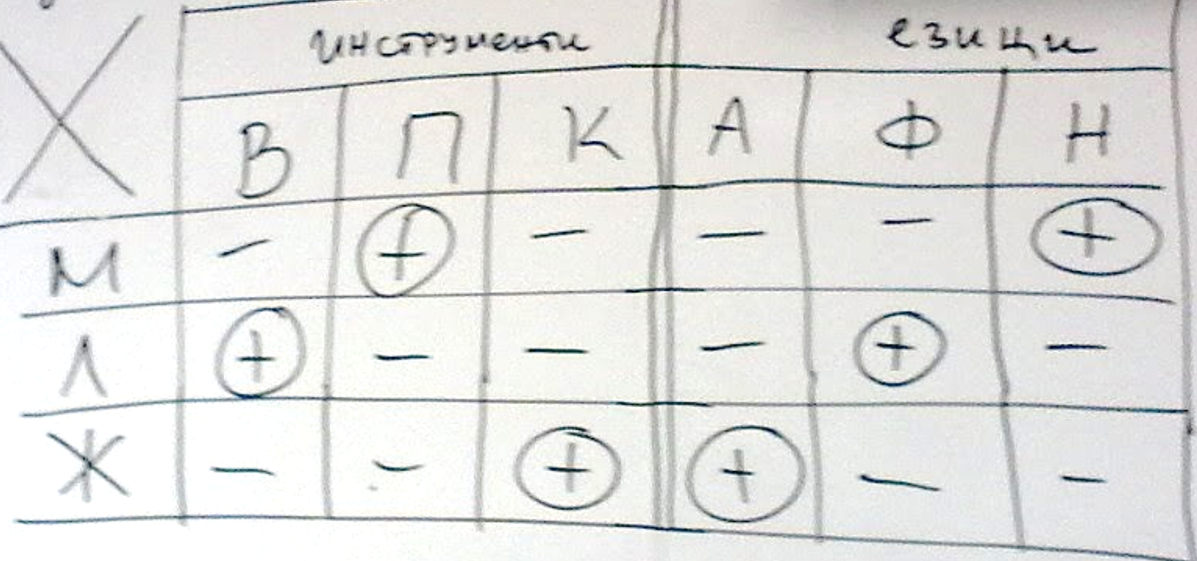 инструменти езици
В П К А Ф Н
М - + - - - +
Л + - - - + -
Ж - - + + - -